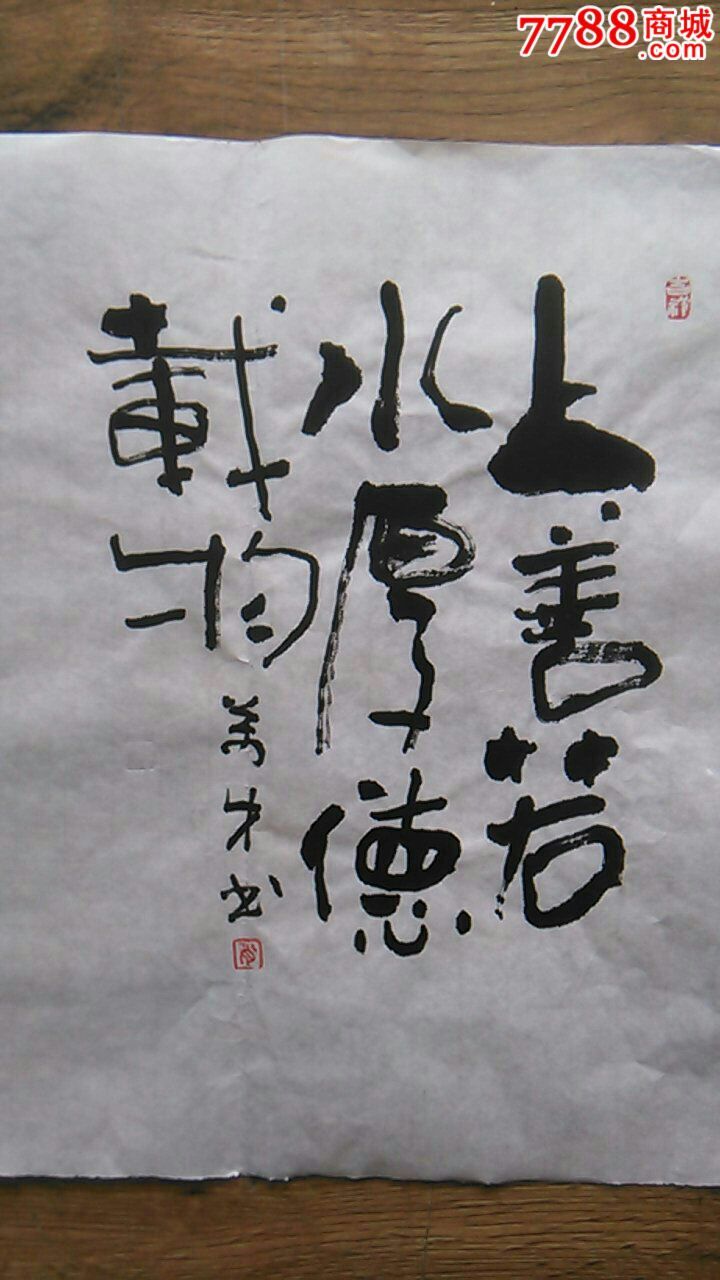 7788商城
.com
吉祥
上善若
水厚德
載物
萬才书